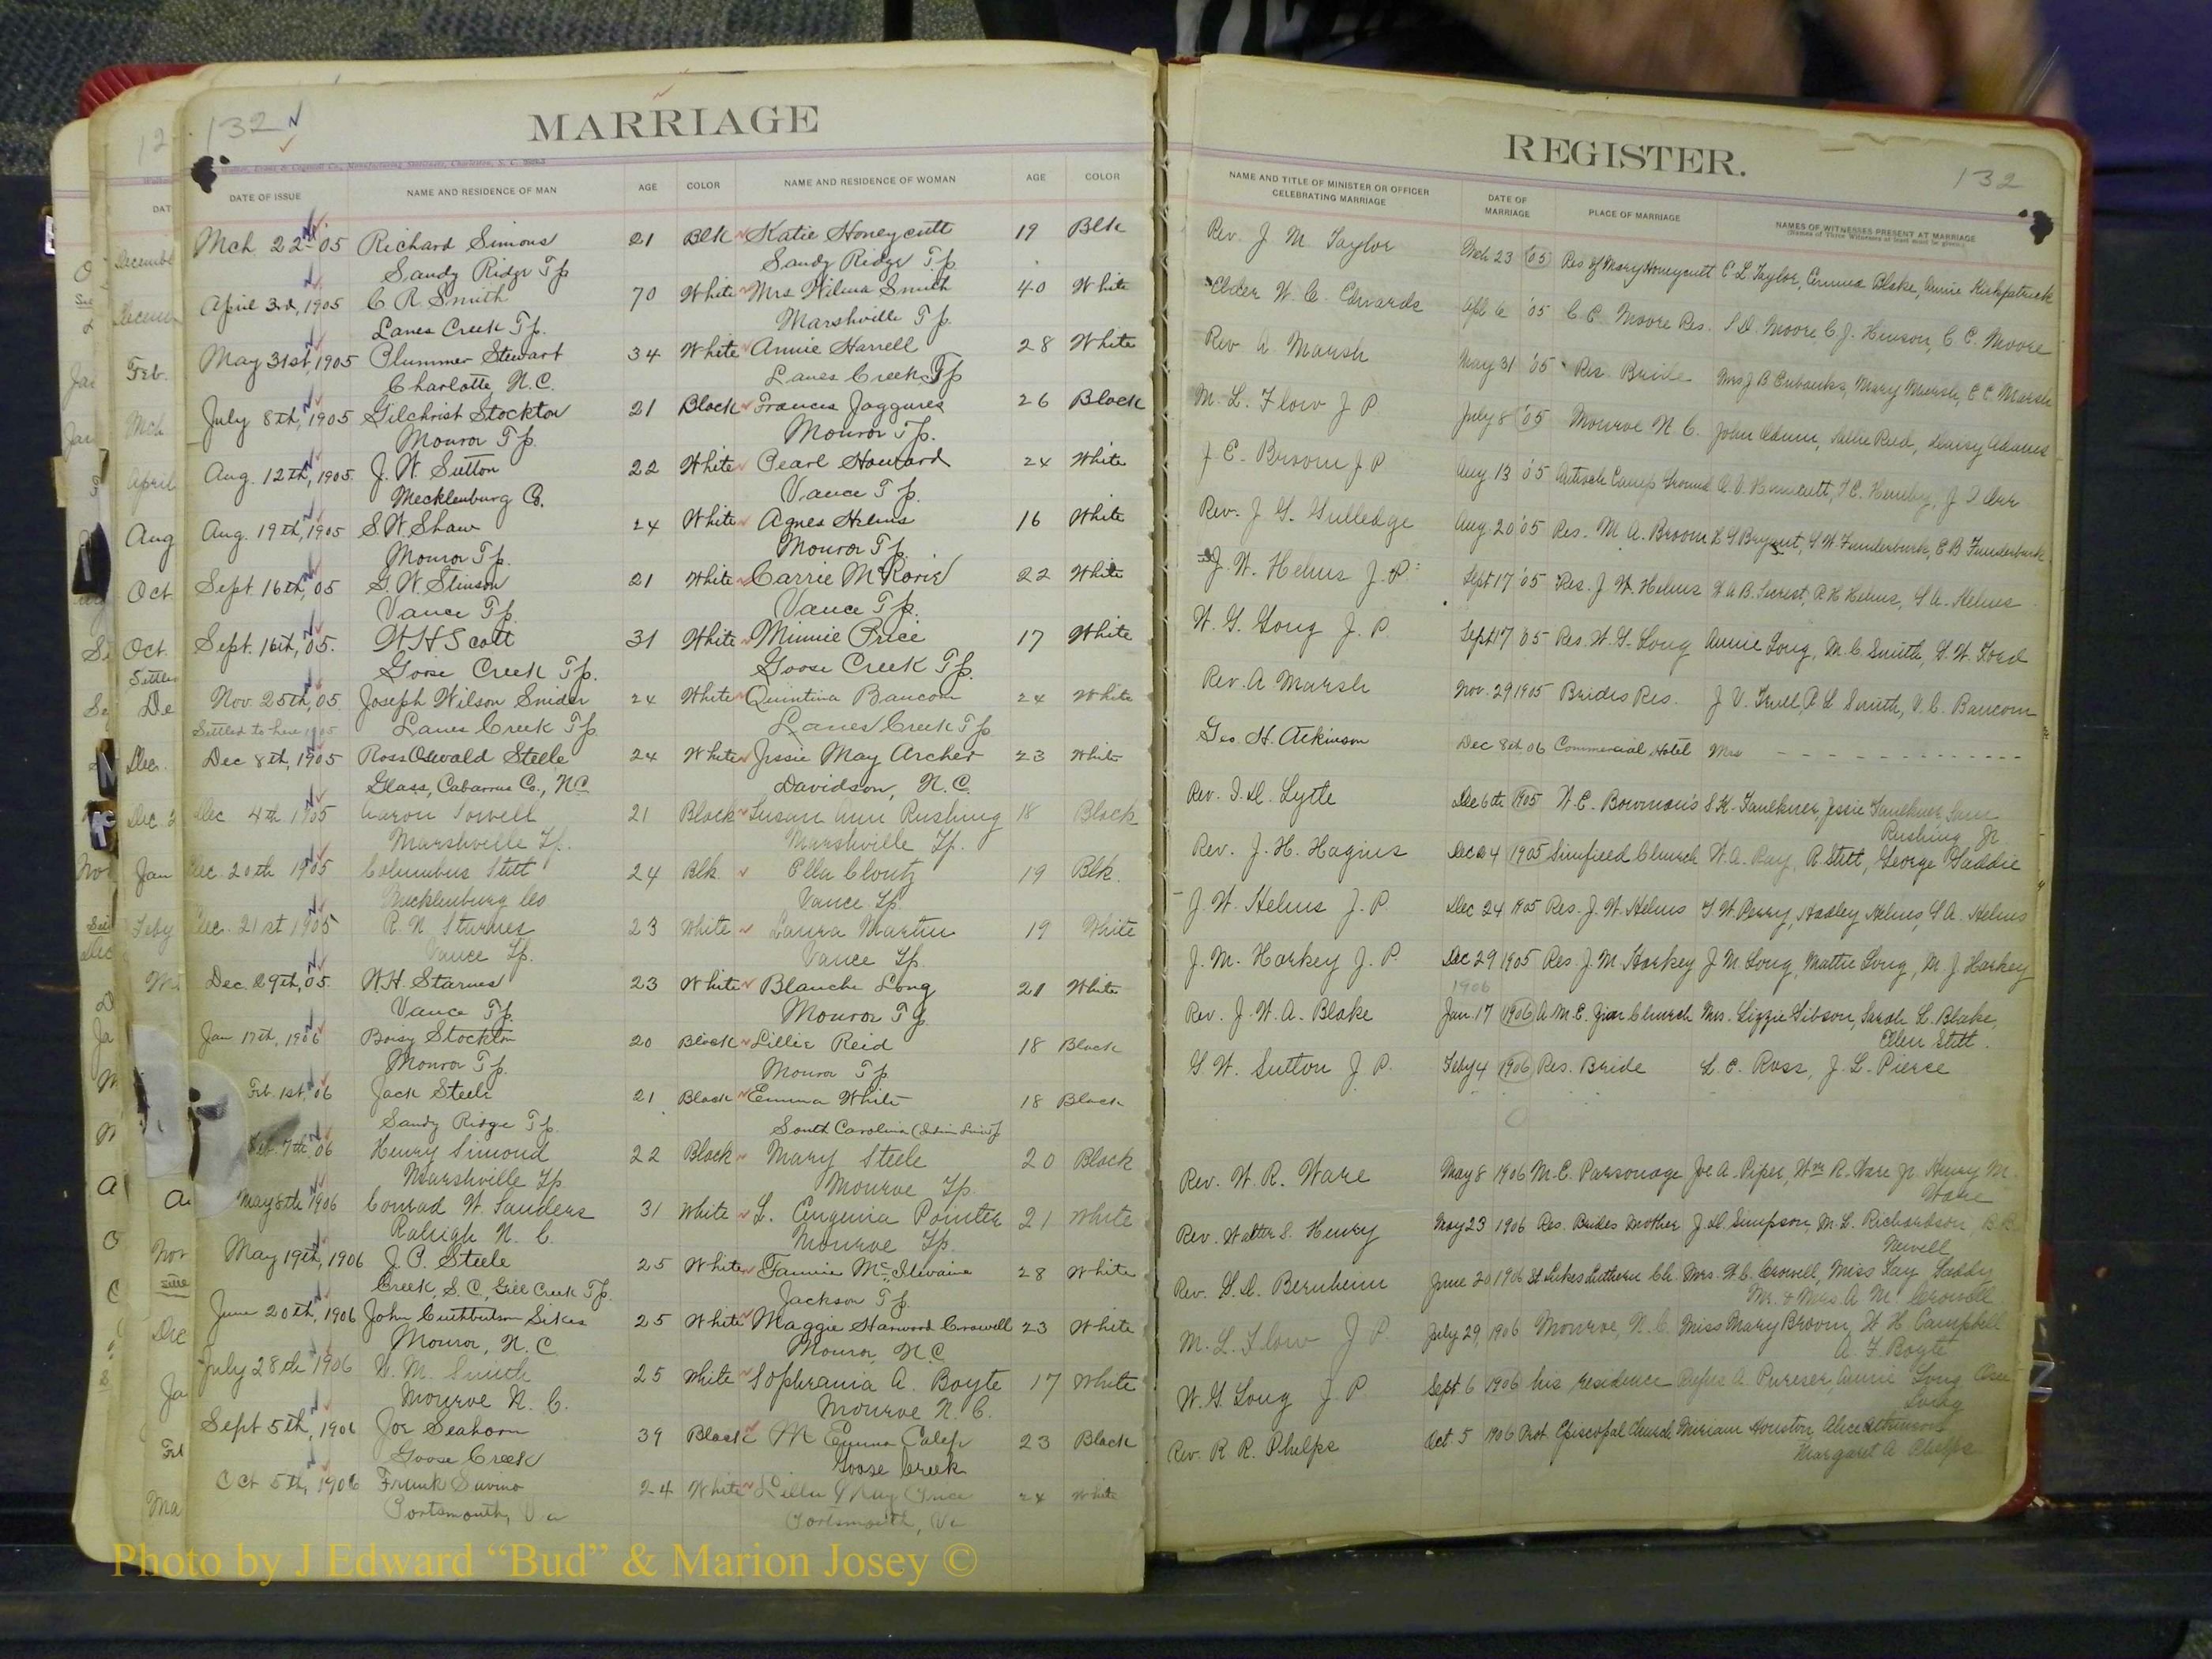 132
MARRIAGE
DATE OF ISSUE NAME AND RESIDENCE OF MAN AGE COLOR NAME AND RESIDENCE OF WOMAN AGE COLOR
Mch 22 '05 Richard Simons 21 Blk Katie Honeycutt 19 Blk
Sandy Ridge Tp Sandy Ridge Tp.
April 3rd, 1905 C R Smith 70 White Mrs Wilma Smith 40 White
Lanes Creek Tp. Marshville Tp.
May 31st, 1905 Plummer Stewart 34 White Annie Harrell 28 White
Charlotte, N.C. Lanes Creek Tp
July 8th, 1905 Gilchrist Stockton 21 Black Frances Jaggures 26 Black
Monroe Tp. Monroe Tp.
Aug. 12th, 1905. J. W. Sutton 22 White Pearl Howard 24 White
Mecklenburg Co. Vance Tp.
Aug. 19th, 1905 S. W. Shaw 24 White Agnes Helms 16 White
Monroe Tp. Monroe Tp.
Sept. 16th, 05 G. W. Stinson 21 White Carrie McRorie 22 White
Vance Tp. Vance Tp.
Sept. 16th, 05. W H Scott 31 White Minnie Price 17 White
Goose Creek Tp. Goose Creek Tp.
Nov. 25th, 05 Joseph Wilson Snider 24 White Quintina Baucom 24 White
Settled to here 1905 Lanes Creek Tp Lanes Creek Tp
Dec 8th, 1905 Ross Oswald Steele 24 White Jessie May Archer 23 White
Glass, Cabarrus Co., NC Davidson, N.C.
Dec 4th 1905 Aaron Sowell 21 Black Susan Ann Rushing 18 Black
Marshville Tp. Marshville Tp.
Dec. 20th 1905 Columbus Stitt 24 Blk. Ella Clontz 19 Blk.
Mecklenburg Co Vance Tp.
Dec. 21st 1905 R. N. Starnes 23 White Laura Martin 19 White
Vance Tp. Vance Tp.
Dec. 29th, 05. W. H. Starnes 23 White Blanche Long 21 White
Vance Tp. Monroe Tp
Jan 17th, 1906 Boisy Stockton 20 Black Lillie Reid 18 Black
Monroe Tp. Monroe Tp
Feb. 1st, 06 Jack Steele 21 Black Emma White 18 Black
Sandy Ridge Tp. South Carolina
Feb. 7th, 06 Henry Simond 22 Black Mary Steele 20 Black
Marshville Tp Monroe Tp.
May 8th 1906 Conrad W. Sanders 31 White L. Eugenia Pointer 21 White
Raleigh N. C. Monroe Tp.
May 19th, 1906 J. P. Steele 25 White Fannie McIlwaine 28 White
Creek, S.C., Gill Creek Tp. Jackson Tp.
June 20th, 1906 John Cuthbertson Sikes 25 White Maggie Stanwood Crowell 23 White
Monroe, N.C. Monroe, N.C
July 28th 1906 W. M. Smith 25 White Sophrania A. Boyte 17 White
Monroe N. C. Monroe N. C.
Sept 5th, 1906 Joe Seahorn 39 Black M Emma Caley 23 Black
Goose Creek Goose Creek
Oct 5th, 1906 Frank Savino 24 White Lilla May Price 24 White
Portsmouth, Va Portsmouth, Va
REGISTER.
132
NAME AND TITLE OF MINISTER OR OFFICER CELEBRATING MARRIAGE DATE OF MARRIAGE PLACE OF MARRIAGE NAMES OF WITNESSES PRESENT AT MARRIAGE
(Names of Three Witnesses at least must be given.)
Rev. J. M. Taylor Mch 23 '05 Res of Mary Honeycutt C L Taylor, Blake, Annie Kirkpatrick
Elder W. C. Edwards Apl 6 '05 C. C. Moore Res. S. D. Moore, C. J. Hinson, C C. Moore
Rev A. Marsh May 31 '05 Res. Bride Mrs J B Eubanks, Mary Marsh, E. C. Marsh
M. L. Flow J P July 8 '05 Monroe N. C. John Adams, Sallie Reid, Daisy Adams
J. E. Broom J P Aug. 13 '05 Antioch Camp Ground J. I. Orr
Rev. J. G. Gulledge Aug 20 '05 Res. M. A. Broom L G Bryant, G W Funderburk, E B Funderburk
J. W. Helms J. P. Sept 17 '05 Res. J. W. Helms W A B. Secrest, R H Helms, S A. Helms
W. G. Long J. P. Sept 17 '05 Res. W. G. Long Annie Long, M. C. Smith, G. W. Ford
Rev. A Marsh Nov. 29 1905 Brides Res. J. V. Trull, A L Smith, V. C. Baucom
Geo. H. Atkinson Dec 8th, 06 Commercial Hotel Mrs
Rev. I. D. Lytle Dec 6th 1905 W. C. Bowman's S. K. Faulkner, Jessie Faulkner, Sam
Rushing Jr
Rev. J. H. Hagins Dec 24 1905 Simfield Church W. A. Ray, R. Stitt, George Gaddie
J. W. Helms J. P Dec 24 1905 Res. J. W. Helms T. W. Perry, Hadley Helms, S A. Helms
J. M. Harkey J. P. Dec 29 1905 Res. J. M. Harkey J M. Long, Mattie Long, M. J Harkey
1906
Rev. J. W. A. Blake Jan. 17 1906 A. M. E. Zion Church Mrs. Lizzie Gibson, Sarah L. Blake,
Ellen Stitt.
G W. Sutton J. P. Feby 4 1906 Res. Bride L. C. Ross, J. L. Pierce
Rev. W. R. Ware May 8 1906 M. E. Parsonage Joe A. Piper, Wm R. Ware Jr. Henry M.
Ware
Rev. Walter S. Henry May 23 1906 Res. Brides Mother J. D. Simpson, M. L. Richardson, B. B.
Newell
Rev. G. D. Bernheim June 20 1906 St Lukes Lutheran Ch. Mrs. W. C. Crowell, Miss Fay Gaddy
Mr. & Mrs. A. M. Crowell
M. L. Flow J P. July 29, 1906 Monroe, N. C. Miss Mary Broom, W H. Campbell
A. F. Boyte
W. G. Long J. P Sept. 6 1906 his residence Rufus A Purser, Annie Long
Long
Rev. R. R. Phelps Oct 5 1906 Prot. Episcopal Church Miriam Houston, Alice Atkinson
Margaret A Phelps
Photo by J Edward “Bud” & Marion Josey ©